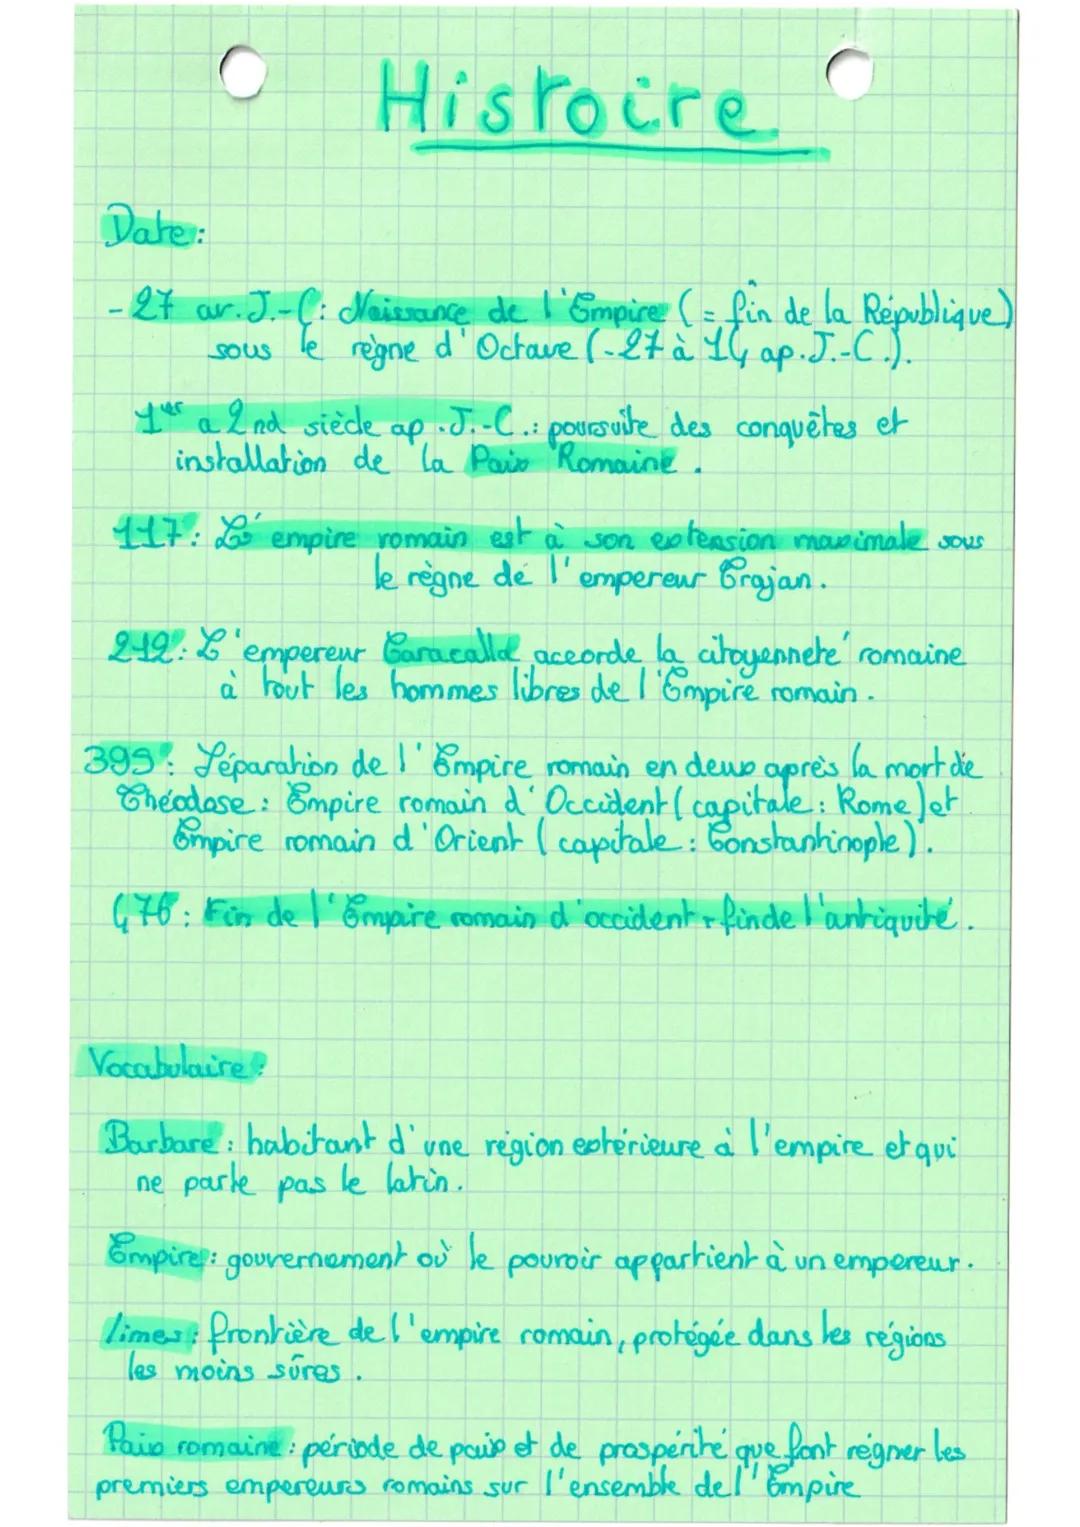 Histoire
Date:
- 27 av. J.-C: Naissance de l'Empire (= fin de la République)
sous le règne d'Octave (-27 à 14 ap. J.-C.).
1er a 2nd siècle ap. J.-C.: poursuite des conquêtes et
installation de la Paix Romaine.
117: L'empire romain est à son extension maximale sous
le règne de l'empereur Trajan.
212: L'empereur Caracalla accorde la citoyenneté romaine
à tout les hommes libres de l'Empire romain.
395: Séparation de l'Empire romain en deux après la mort de
Théodose: Empire romain d'Occident (capitale: Rome) et
Empire romain d'Orient (capitale: Constantinople).
476: Fin de l'Empire romain d'occident + fin de l'antiquité.
Vocabulaire:
Barbare: habitant d'une région extérieure à l'empire et qui
ne parle pas le latin.
Empire: gouvernement où le pouvoir appartient à un empereur.
limes: frontière de l'empire romain, protégée dans les régions
les moins sûres.
Paix romaine: période de paix et de prospérité que font régner les
premiers empereurs romains sur l'ensemble de l'Empire